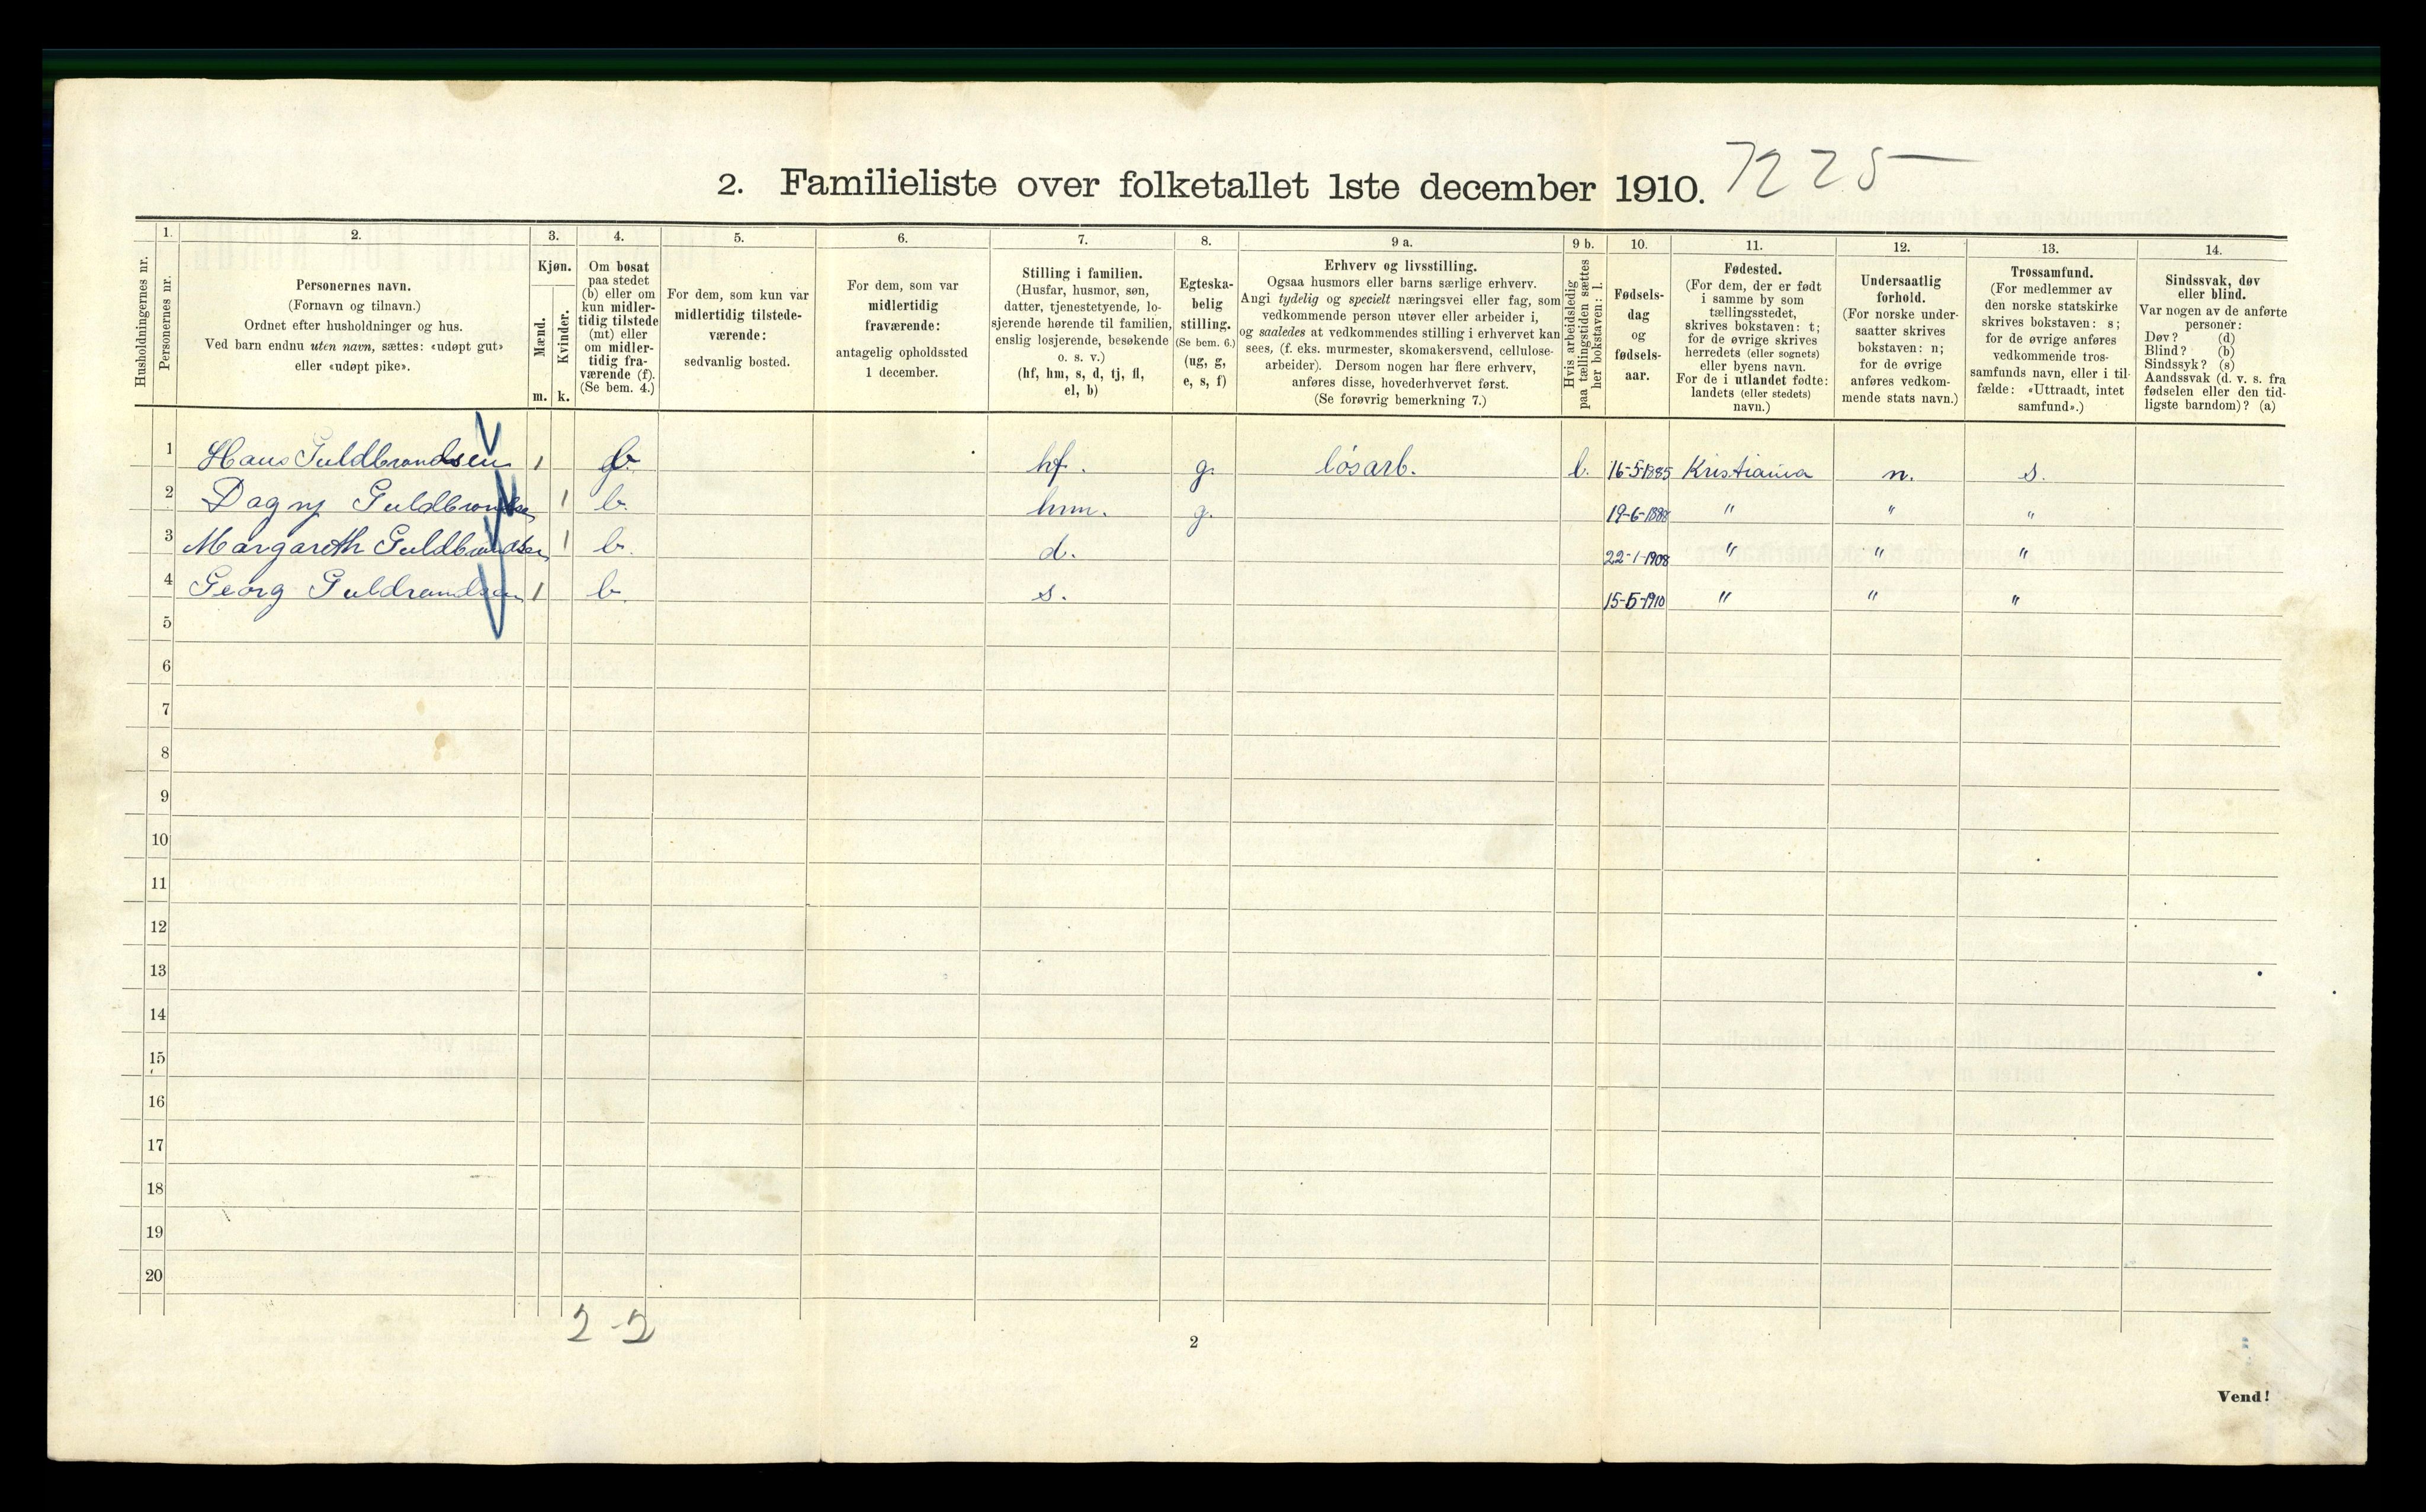 2. Familieliste over folketallet 1ste december 1910. 7225
1. 2. 3. 4. 5. 6. 7. 8. 9 a. 9 b. 10. 11. 12. 13. 14.
Husholdningernes nr.
Personernes nr.
Personernes navn.
(Fornavn og tilnavn.)
Ordnet efter husholdninger og hus.
Ved barn endnu uten navn, sættes: «udøpt gut»
eller «udøpt pike».
Kjøn.
Mænd.
Kvinder.
m. k.
Om bosat
paa stedet
(b) eller om
kun midler-
tidig tilstede
(mt) eller
om midler-
tidig fra-
værende (f).
(Se bem. 4.)
For dem, som kun var
midlertidig tilstede-
værende:
sedvanlig bosted.
For dem, som var
midlertidig
fraværende:
antagelig opholdssted
1 december.
Stilling i familien.
(Husfar, husmor, søn,
datter, tjenestetyende, lo-
sjerende hørende til familien,
enslig losjerende, besøkende
o. s. v.)
(hf, hm, s, d, tj, fl,
el, b)
Egteska-
belig
stilling.
(Se bem. 6.)
(ug, g,
e, s, f)
Erhverv og livsstilling.
Ogsaa husmors eller barns særlige erhverv.
Angi tydelig og specielt næringsvei eller fag, som
vedkommende person utøver eller arbeider i,
og saaledes at vedkommendes stilling i erhvervet kan
sees, (f. eks. murmester, skomakersvend, cellulose-
arbeider). Dersom nogen har flere erhverv,
anføres disse, hovederhvervet først.
(Se forøvrig bemerkning 7.)
Hvis arbeidsledig
paa tællingstiden sættes
her bokstaven: l.
Fødsels-
dag
og
fødsels-
aar.
Fødested.
(For dem, der er født
i samme by som
tællingsstedet,
skrives bokstaven: t;
for de øvrige skrives
herredets (eller sognets)
eller byens navn.
For de i utlandet fødte:
landets (eller stedets)
navn.)
Undersaatlig
forhold.
(For norske under-
saatter skrives
bokstaven: n;
for de øvrige
anføres vedkom-
mende stats navn.)
Trossamfund.
(For medlemmer av
den norske statskirke
skrives bokstaven: s;
for de øvrige anføres
vedkommende tros-
samfunds navn, eller i til-
fælde: «Uttraadt, intet
samfund».)
Sindssvak, døv
eller blind.
Var nogen av de anførte
personer:
Døv? (d)
Blind? (b)
Sindssyk? (s)
Aandssvak (d. v. s. fra
fødselen eller den tid-
ligste barndom)? (a)
1 Hans Guldbrandsen 1 b. hf. g. løsarb. l. 16-5-1885 Kristiania n. s.
2 Dagny Guldbrandsen 1 b. hm. g. 19-6-1888 " " "
3 Margareth Guldbrandsen 1 b. d. 22-1-1908 " " "
4 Georg Guldrandsen 1 b. s. 15-5-1910 " " "
5
6
7
8
9
10
11
12
13
14
15
16
17
18
19
20
2-2
2
Vend!